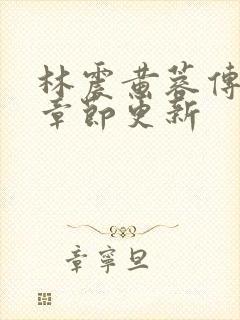 林震黄蓉傳
章節更新
章寧旦